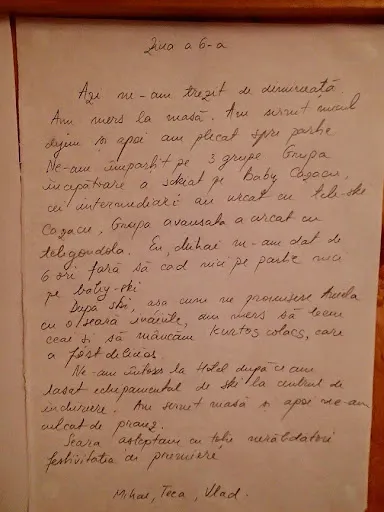 Ziua a 6-a
Azi ne-am trezit de dimineață.
Am mers la masă. Am servit micul
dejun și apoi am plecat spre partie
Ne-am împărțit pe 3 grupe Grupa
începătoare a schiat pe Baby Cazacu,
cei intermediari au urcat cu tele-ski
Cazacu, Grupa avansata a urcat cu
telegondola. Eu, Mihai m-am dat de
6 ori fară să cad nici pe partie nici
pe baby-ski
După ski, asa cum ne promisese
cu o seară înainte, am mers să bem
ceai și să mâncăm kurtos colacs, care
a fost delicios.
Ne-am întors la Hotel după ce am
lasat echipamentul de ski la centrul de
inchiriere. Am servit masă și apoi ne-am
culcat de pranz.
Seara asteptam cu totii nerăbdatori
festivitatea de premiere
Mihai, Teca, Vlad.